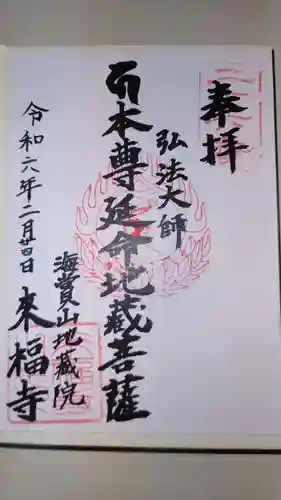 奉拝
弘法大師
本尊延命地蔵菩薩
海賞山地蔵院
来福寺
令和六年二月廿四日